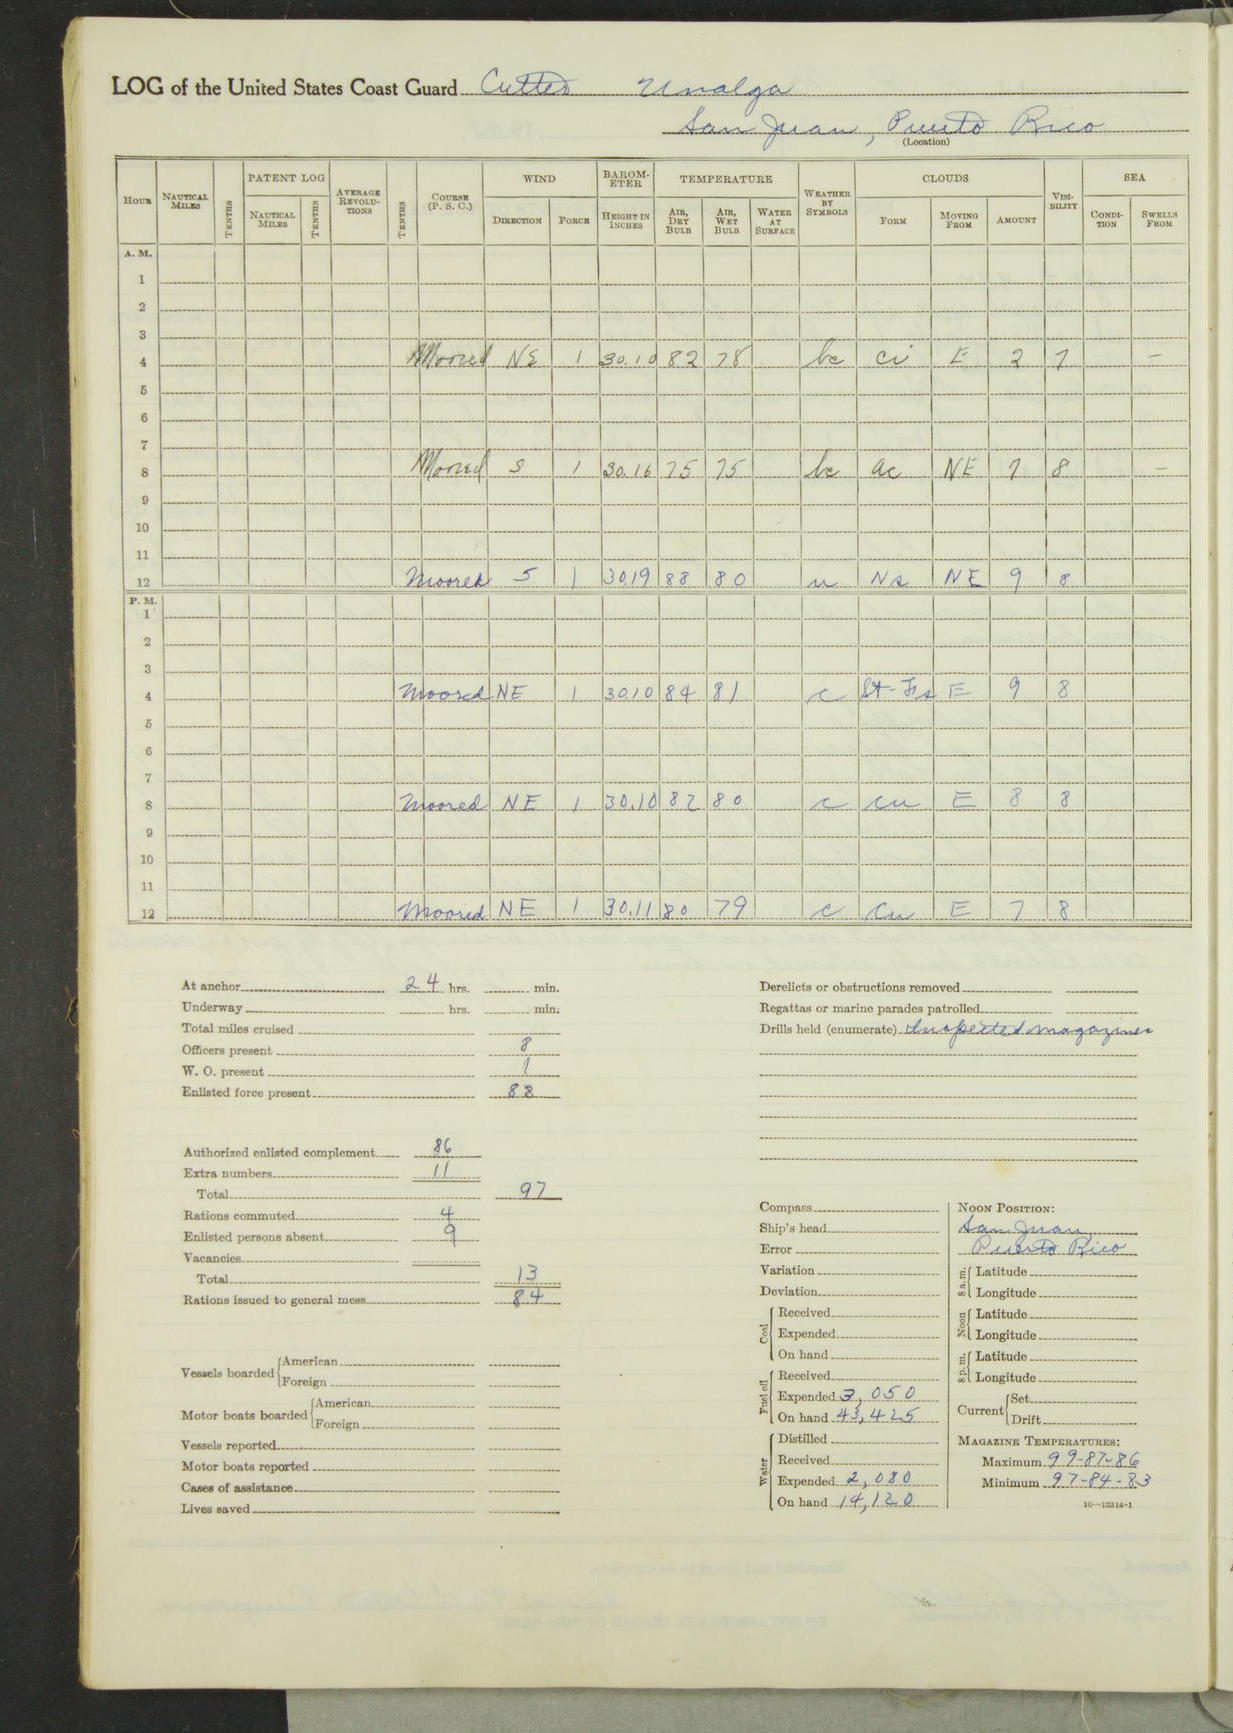 LOG of the United States Coast Guard Cutter Unalga
San Juan, Puerto Rico
(Location)
HOUR NAUTICAL MILES TENTHS PATENT LOG NAUTICAL MILES TENTHS AVERAGE REVOLUTIONS TENTHS COURSE (P. S. C.) WIND DIRECTION FORCE BAROMETER HEIGHT IN INCHES TEMPERATURE AIR, DRY BULB AIR, WET BULB WATER AT SURFACE WEATHER BY SYMBOLS CLOUDS FORM MOVING FROM AMOUNT VISIBILITY SEA CONDITION SWELLS FROM
A. M.
1
2
3
4 Moored NE 1 30.10 82 78 bc ci E 2 7 –
5
6
7
8 Moored S 1 30.16 75 75 bc ac NE 7 8 –
9
10
11
12 Moored S 1 30.19 88 80 Ns NE 9 8
P. M.
1
2
3
4 Moored NE 1 30.10 84 81 c E 9 8
5
6
7
8 Moored NE 1 30.10 82 80 c cu E 8 8
9
10
11
12 Moored NE 1 30.11 80 79 c Cu E 7 8
At anchor 24 hrs. min.
Underway hrs. min.
Total miles cruised
Officers present 8
W. O. present 1
Enlisted force present 88
Authorized enlisted complement 86
Extra numbers 11
Total 97
Rations commuted 4
Enlisted persons absent 9
Vacancies
Total 13
Rations issued to general mess 84
Vessels boarded American
Foreign
Motor boats boarded American
Foreign
Vessels reported
Motor boats reported
Cases of assistance
Lives saved
Derelicts or obstructions removed
Regattas or marine parades patrolled
Drills held (enumerate) Inspected magazines
Compass
Ship's head
Error
Variation
Deviation
Coal Received
Expended
On hand
Fuel oil Received
Expended 3,050
On hand 43,425
Water Distilled
Received
Expended 2,080
On hand 14,120
NOON POSITION:
San Juan,
Puerto Rico
8 a.m. Latitude
Longitude
Noon Latitude
Longitude
8 p.m. Latitude
Longitude
Current Set
Drift
MAGAZINE TEMPERATURES:
Maximum 99-87-86
Minimum 97-84-83
16—13314-1